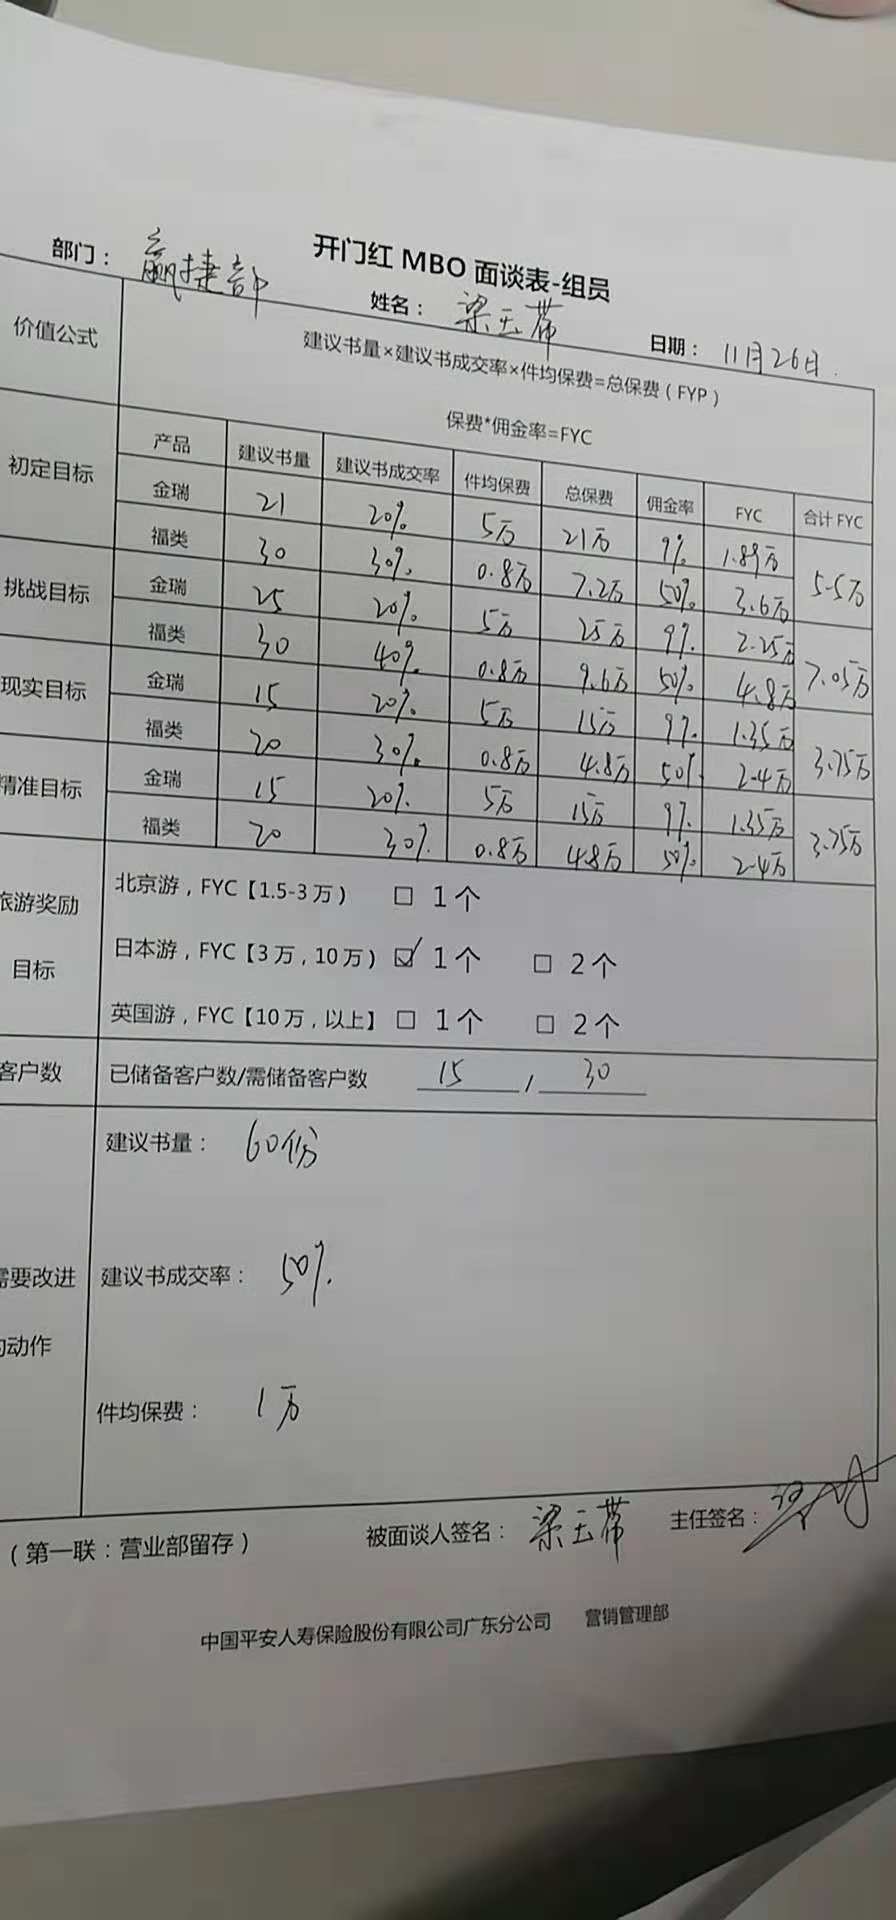 开门红 MBO 面谈表-组员
部门： 赢捷部 姓名： 梁玉蒂 日期： 11月26日.
价值公式 建议书量×建议书成交率×件均保费=总保费（FYP）
保费*佣金率=FYC
产品 建议书量 建议书成交率 件均保费 总保费 佣金率 FYC 合计 FYC
初定目标 金瑞 21 20% 5万 21万 9% 1.89万 5.5万
福类 30 30% 0.8万 7.2万 50% 3.6万
挑战目标 金瑞 25 20% 5万 25万 9% 2.25万 7.05万
福类 30 40% 0.8万 9.6万 50% 4.8万
现实目标 金瑞 15 20% 5万 15万 9% 1.35万 3.75万
福类 20 30% 0.8万 4.8万 50% 2.4万
精准目标 金瑞 15 20% 5万 15万 9% 1.35万 3.75万
福类 20 30% 0.8万 4.8万 50% 2.4万
旅游奖励
目标
北京游，FYC【1.5-3 万） □ 1个
日本游，FYC【3 万，10 万） ☑ 1个 □ 2个
英国游，FYC【10 万，以上】 □ 1个 □ 2个
客户数 已储备客户数/需储备客户数 15 / 30
需要改进
的动作
建议书量： 60份
建议书成交率： 50%.
件均保费： 1万
（第一联：营业部留存） 被面谈人签名： 梁玉蒂 主任签名：
中国平安人寿保险股份有限公司广东分公司 营销管理部